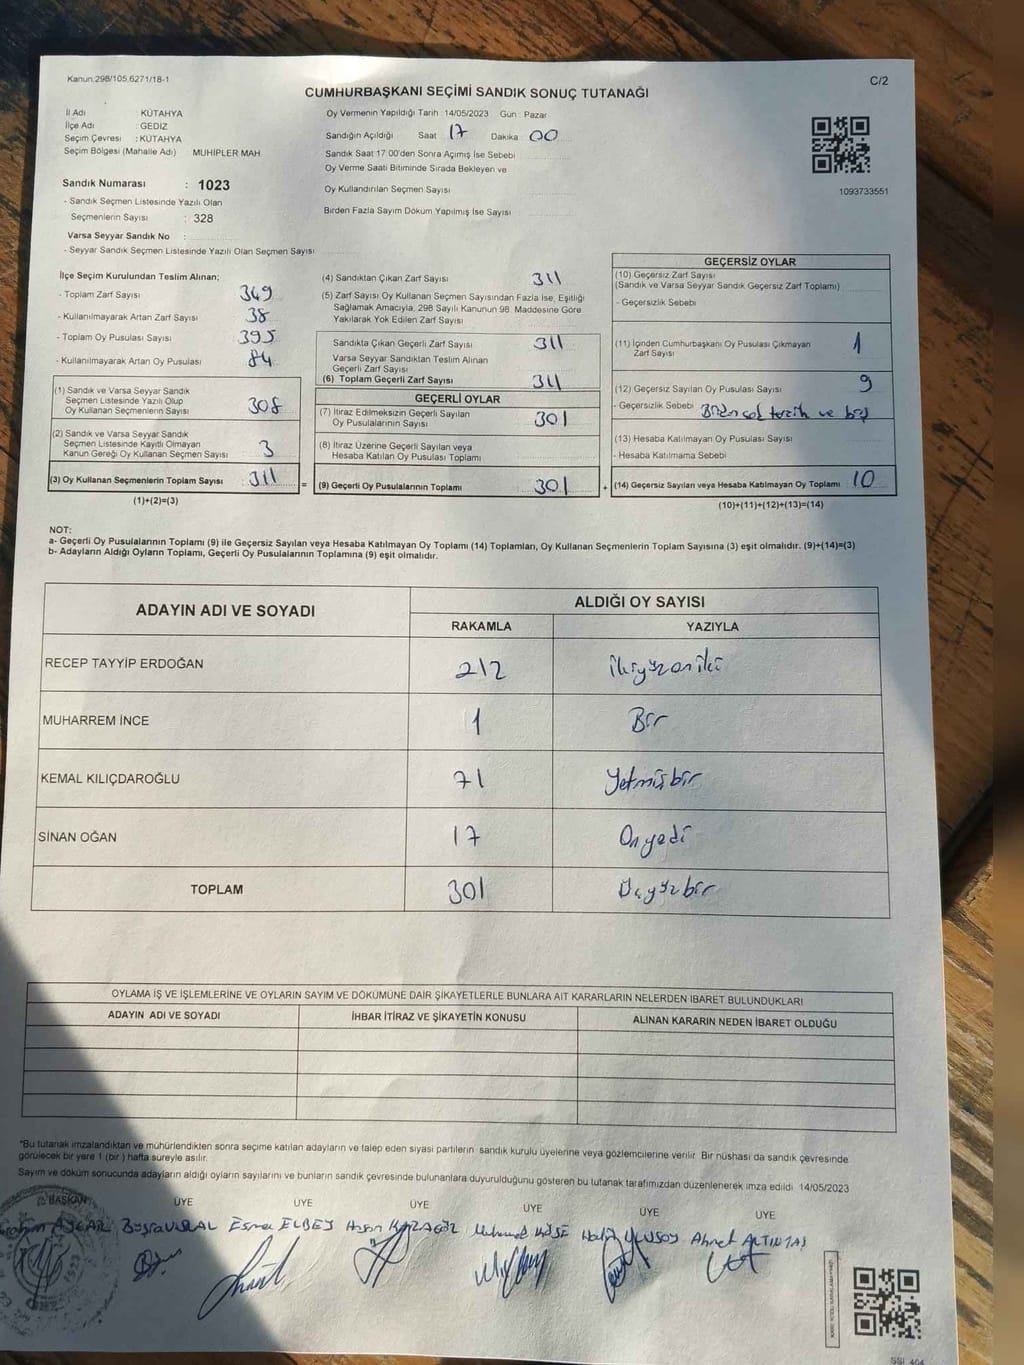 Kanun.298/105,6271/18-1
C/2
CUMHURBAŞKANI SEÇİMİ SANDIK SONUÇ TUTANAĞI
İl Adı : KÜTAHYA
İlçe Adı : GEDİZ
Seçim Çevresi : KÜTAHYA
Seçim Bölgesi (Mahalle Adı) MUHİPLER MAH.
Oy Vermenin Yapıldığı Tarih : 14/05/2023 Gün : Pazar
Sandığın Açıldığı Saat 17 Dakika 00
Sandık Saat 17:00'den Sonra Açımış İse Sebebi
Oy Verme Saati Bitiminde Sırada Bekleyen ve
Oy Kullandırılan Seçmen Sayısı
Birden Fazla Sayım Döküm Yapılmış İse Sayısı
1093733551
Sandık Numarası : 1023
- Sandık Seçmen Listesinde Yazılı Olan
Seçmenlerin Sayısı : 328
Varsa Seyyar Sandık No :
- Seyyar Sandık Seçmen Listesinde Yazılı Olan Seçmen Sayısı
İlçe Seçim Kurulundan Teslim Alınan;
- Toplam Zarf Sayısı 349
- Kullanılmayarak Artan Zarf Sayısı 38
- Toplam Oy Pusulası Sayısı 395
- Kullanılmayarak Artan Oy Pusulası 84
(1) Sandık ve Varsa Seyyar Sandık
Seçmen Listesinde Yazılı Olup
Oy Kullanan Seçmenlerin Sayısı 308
(2) Sandık ve Varsa Seyyar Sandık
Seçmen Listesinde Kayıtlı Olmayan
Kanun Gereği Oy Kullanan Seçmen Sayısı 3
(3) Oy Kullanan Seçmenlerin Toplam Sayısı : 311 =
(1)+(2)=(3)
(4) Sandıktan Çıkan Zarf Sayısı 311
(5) Zarf Sayısı Oy Kullanan Seçmen Sayısından Fazla İse, Eşitliği
Sağlamak Amacıyla, 298 Sayılı Kanunun 98. Maddesine Göre
Yakılarak Yok Edilen Zarf Sayısı
Sandıkta Çıkan Geçerli Zarf Sayısı 311
Varsa Seyyar Sandıktan Teslim Alınan
Geçerli Zarf Sayısı
(6) Toplam Geçerli Zarf Sayısı 311
GEÇERLİ OYLAR
(7) İtiraz Edilmeksizin Geçerli Sayılan
Oy Pusulalarının Sayısı 301
(8) İtiraz Üzerine Geçerli Sayılan veya
Hesaba Katılan Oy Pusulası Toplamı
(9) Geçerli Oy Pusulalarının Toplamı 301 +
GEÇERSİZ OYLAR
(10) Geçersiz Zarf Sayısı
(Sandık ve Varsa Seyyar Sandık Geçersiz Zarf Toplamı)
- Geçersizlik Sebebi
(11) İçinden Cumhurbaşkanı Oy Pusulası Çıkmayan
Zarf Sayısı 1
(12) Geçersiz Sayılan Oy Pusulası Sayısı 9
- Geçersizlik Sebebi Birden çok tercih ve boş
(13) Hesaba Katılmayan Oy Pusulası Sayısı
- Hesaba Katılmama Sebebi
(14) Geçersiz Sayılan veya Hesaba Katılmayan Oy Toplamı 10
(10)+(11)+(12)+(13)=(14)
NOT:
a- Geçerli Oy Pusulalarının Toplamı (9) ile Geçersiz Sayılan veya Hesaba Katılmayan Oy Toplamı (14) Toplamları, Oy Kullanan Seçmenlerin Toplam Sayısına (3) eşit olmalıdır. (9)+(14)=(3)
b- Adayların Aldığı Oyların Toplamı, Geçerli Oy Pusulalarının Toplamına (9) eşit olmalıdır.
ADAYIN ADI VE SOYADI
ALDIĞI OY SAYISI
RAKAMLA YAZIYLA
RECEP TAYYİP ERDOĞAN 212 ikiyüzoniki
MUHARREM İNCE 1 Bir
KEMAL KILIÇDAROĞLU 71 Yetmişbir
SİNAN OĞAN 17 Onyedi
TOPLAM 301 Üçyüzbir
OYLAMA İŞ VE İŞLEMLERİNE VE OYLARIN SAYIM VE DÖKÜMÜNE DAİR ŞİKAYETLERLE BUNLARA AİT KARARLARIN NELERDEN İBARET BULUNDUKLARI
ADAYIN ADI VE SOYADI İHBAR İTİRAZ VE ŞİKAYETİN KONUSU ALINAN KARARIN NEDEN İBARET OLDUĞU
*Bu tutanak imzalandıktan ve mühürlendikten sonra seçime katılan adayların ve talep eden siyasi partilerin sandık kurulu üyelerine veya gözlemcilerine verilir. Bir nüshası da sandık çevresinde
görülecek bir yere 1 (bir ) hafta süreyle asılır.
Sayım ve döküm sonucunda adayların aldığı oyların sayılarını ve bunların sandık çevresinde bulunanlara duyurulduğunu gösteren bu tutanak tarafımızdan düzenlenerek imza edildi. 14/05/2023
BAŞKAN ÜYE ÜYE ÜYE ÜYE ÜYE ÜYE
Büşra VURAL Esma ELBEY Hasan KARAGÖZ Mehmet KÖSE ULUSOY Ahmet ALTINTAŞ